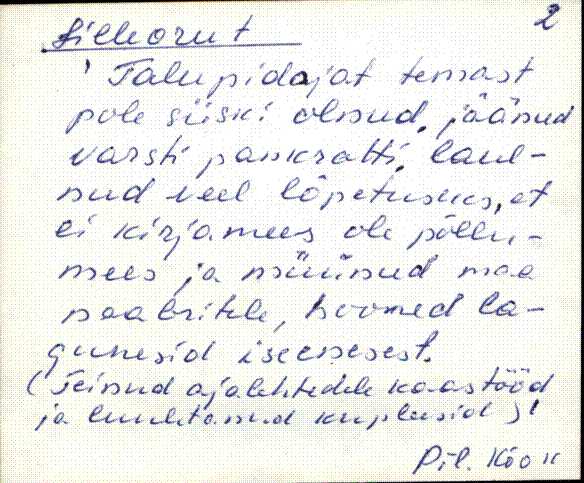 2
Sillaorut
' Talupidajat temast
pole siiski olnud, jäänud
varsti pankrotti, laul-
nud veel lõpetuseks, et
ei kirjamees ole põllu-
mees ja müünud maa
naabritele, hooned la-
gunesid iseenesest.
(Teinud ajalehtedele kaastööd
ja luuletanud kupleesid)'
Pil. Kõo